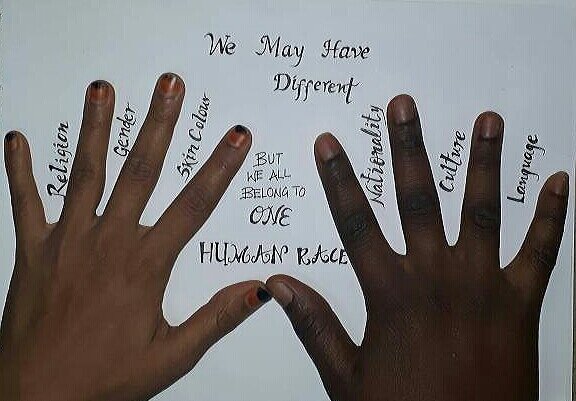 We May Have
Different
Religion
Gender
Skin Colour
Nationality
Culture
Language
BUT
WE ALL
BELONG TO
ONE
HUMAN RACE